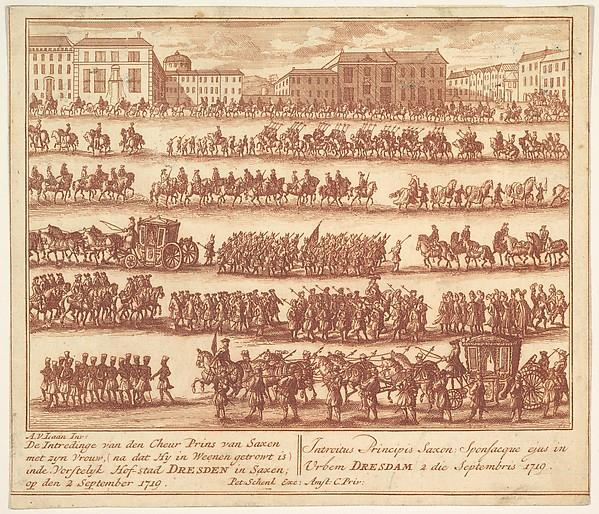 A.V. Laan Inv:
De Intredinge van den Cheur Prins van Saxen
met zyn Vrouw, (na dat Hy in Weenen getrowt is)
inde Vorstelyk Hof-stad DRESDEN in Saxen;
op den 2 September 1719.
Introitus Principis Saxon: Sponsaeque ejus in
Urbem DRESDAM 2 die Septembris 1719.
Pet: Schenk Exc: Amst: C. Priv: